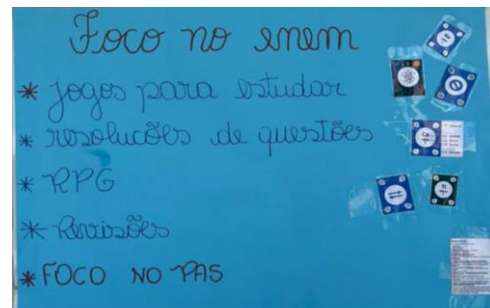 Foco no enem
* jogos para estudar
* resoluções de questões
* RPG
* Revisões
* FOCO NO PAS